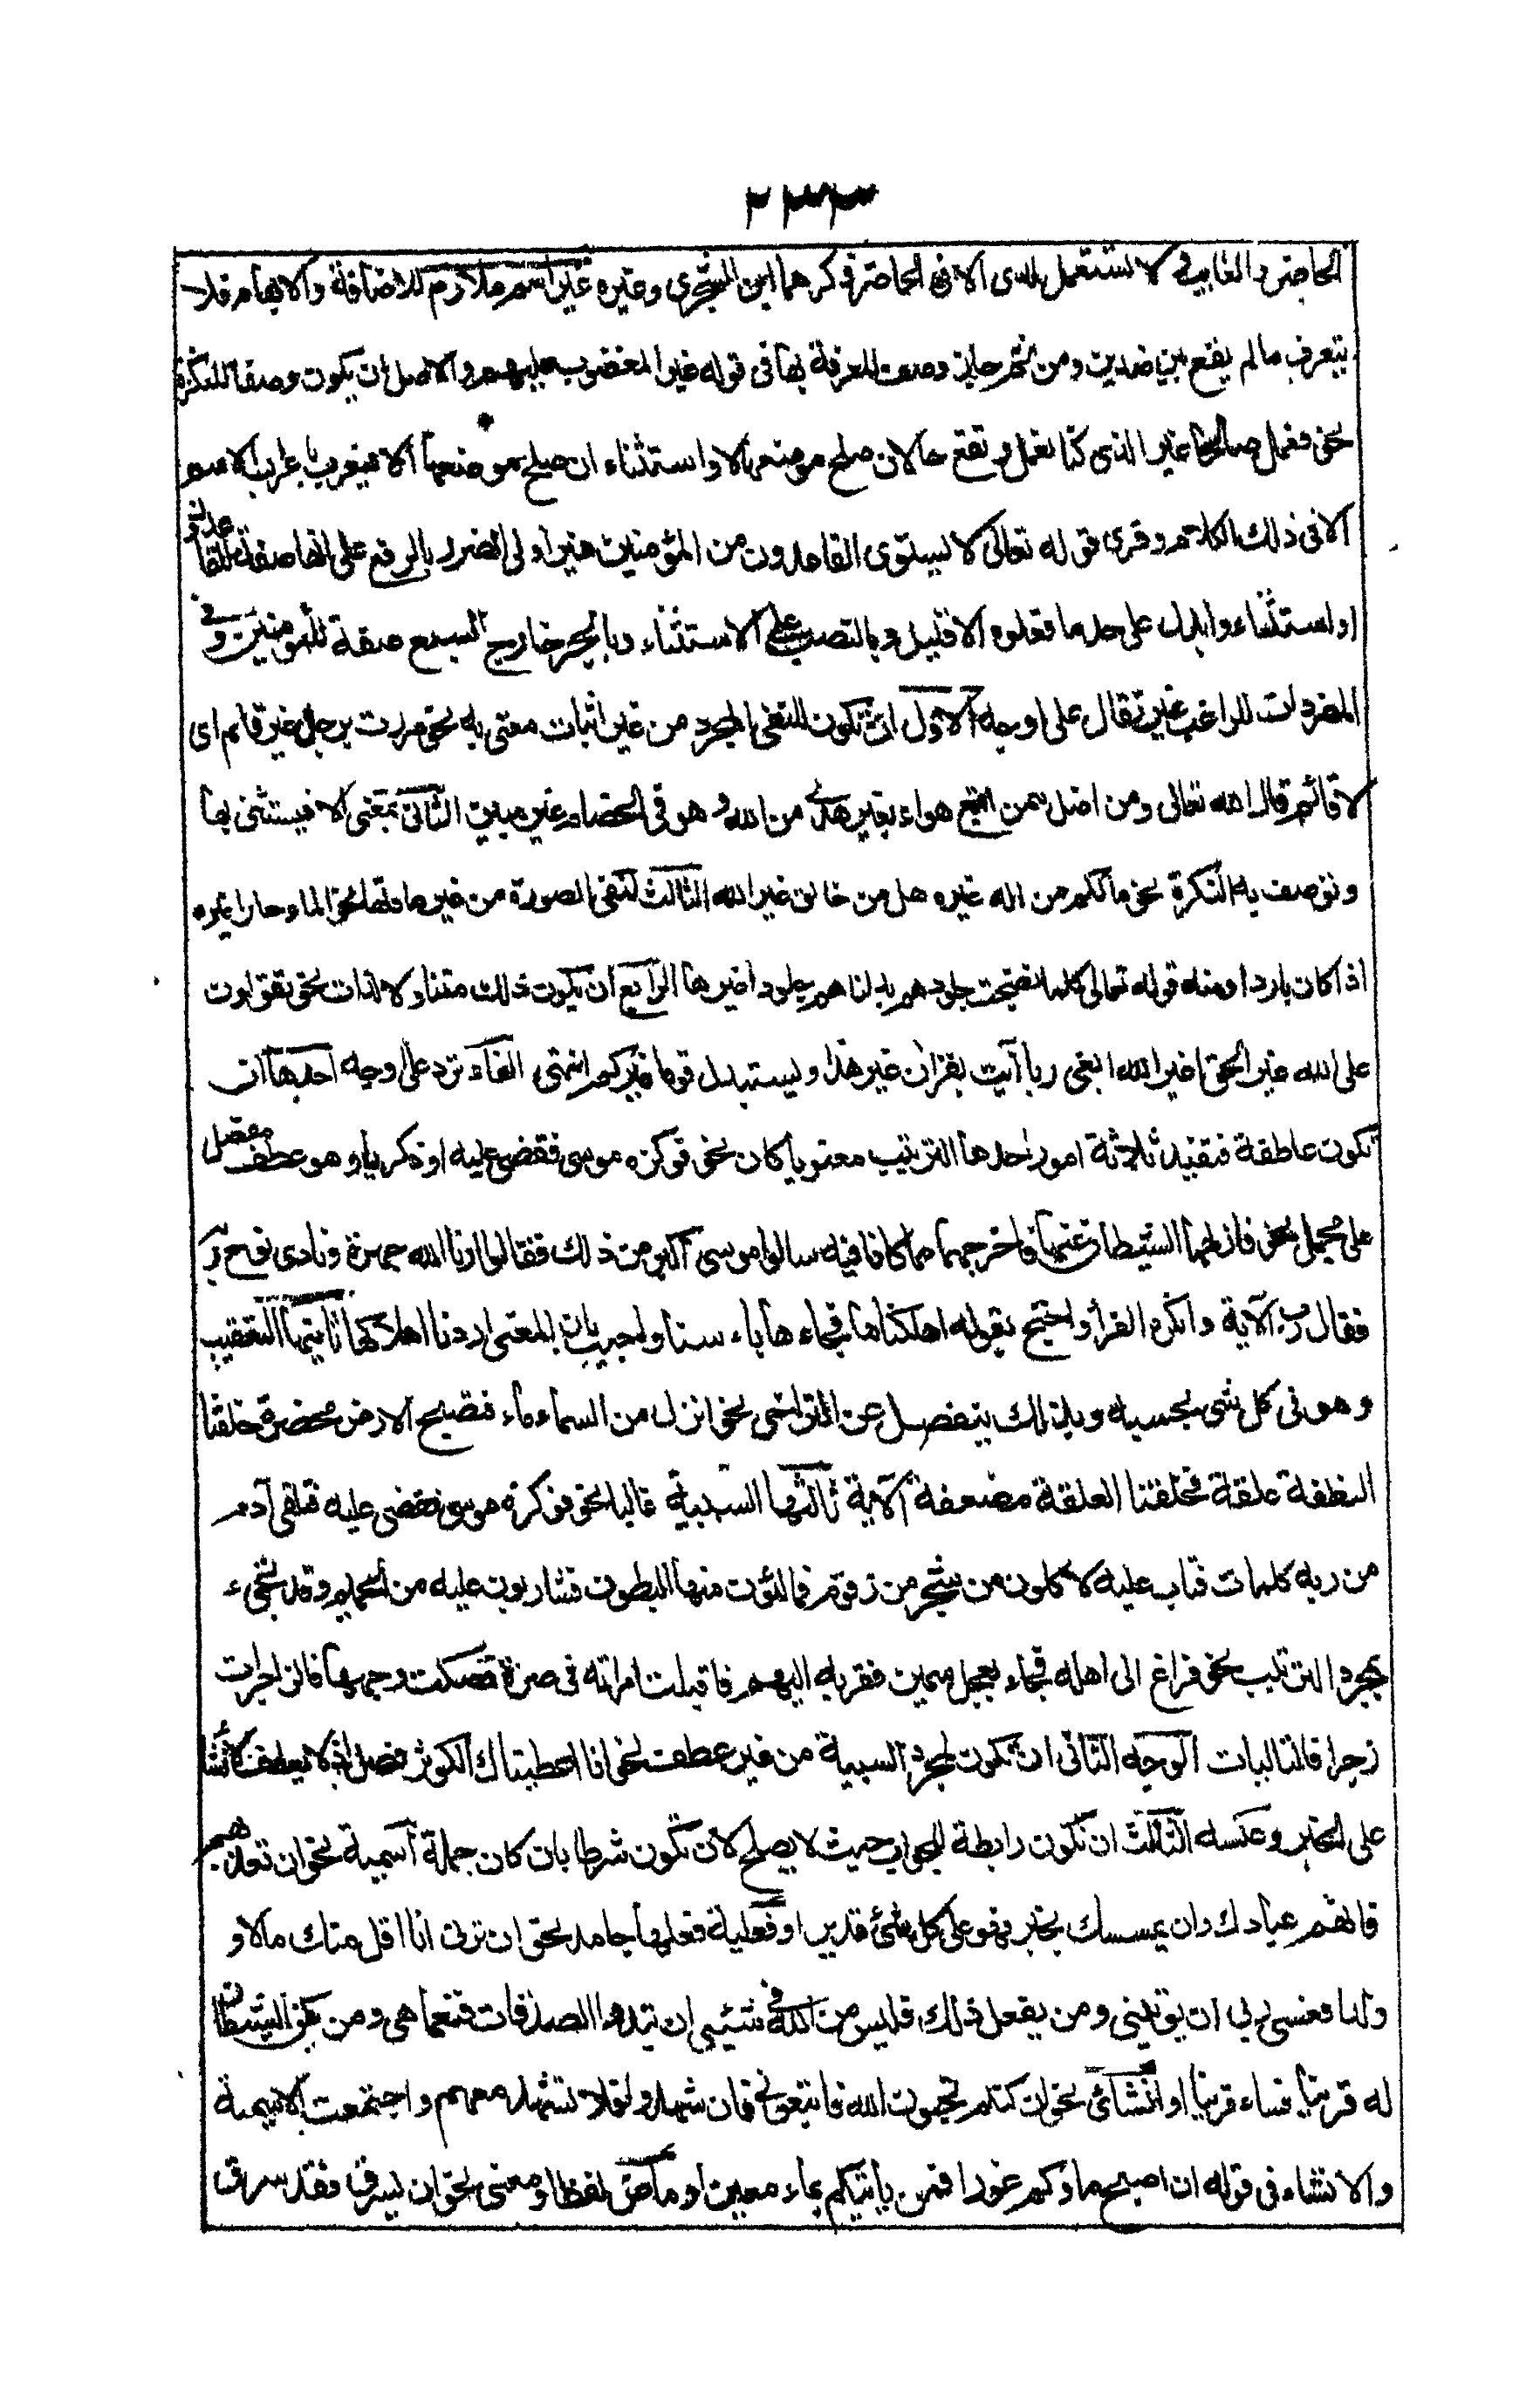 ٢٣٣
الحاضر والغايب ولا تستعمل لدى الا فى الحاضر ذكرهما ابن الشجرى وغيره غير اسم ملازم للاضافة والابهام فلا
يتعرف ما لم يقع بين ضدين ومن ثم جاز وصف المعرفة بها فى قوله غير المغضوب عليهم والاصل ان يكون وصفا للنكرة
نحو نعمل صالحا غير الذى كنا نعمل وتقع حالا ان صلح موضعها لا واستثناء ان صلح موضعها الا فيعرب باعراب الاسم
الا فى ذلك الكلام وقرى قوله تعالى لا يستوى القاعدون من المؤمنين غير اولى الضرر بالرفع على انها صفة للقاعدون
او استثناء وابدل على حد ما فعلوه الا قليل وبالنصب على الاستثناء وبالجر خارج السبع صفة للمؤمنين وفى
المفردات للراغب غير تقال على اوجه الاول ان تكون للنفى المجرد من غير اثبات معنى به نحو مررت برجل غير قائم اى
لا قائم قال الله تعالى ومن اضل ممن اتبع هواه بغير هدى من الله وهو فى الخصام غير مبين الثانى بمعنى الا فيستثنى بها
وتوصف به النكرة نحو ما لكم من اله غيره هل من خالق غير الله الثالث لنفى الصورة من غير مادتها نحو الماء حارا غيره
اذا كان باردا ومنه قوله تعالى كلما نضجت جلودهم بدلناهم جلودا غيرها الرابع ان يكون ذلك متناولا لذات نحو تقولون
على الله غير الحق اغير الله ابغى ربا آيت بقران غير هذا ويستبدل قوما غيركم انتهى الفاء ترد على اوجه احدها ان
تكون عاطفة فتفيد ثلاثة امور احدها الترتيب معنويا كان نحو فوكزه موسى فقضى عليه او ذكريا وهو عطف مفصل
على مجمل نحو فازلهما الشيطان عنها فاخرجهما مما كانا فيه سالوا موسى اكبر من ذلك فقالوا ارنا الله جهرة ونادى نوح ربه
فقال رب الآية وانكره الفرأ واحتج بقوله اهلكناها فجاءها باسنا واجيب بان المعنى اردنا اهلاكها ثانيها التعقيب
وهو فى كل شى بحسبه وبذلك ينفصل عن التراخى نحو انزل من السماء ماء فتصبح الارض مخضرة خلقنا
النطفة علقة فخلقنا العلقة مضغة الآية ثالثها السببية غالبا نحو فوكزه موسى فقضى عليه فتلقى آدم
من ربه كلمات فتاب عليه لاكلون من شجر من زقوم فمالئون منها البطون فشاربون عليه من الحميم وقد تجىء
لمجرد الترتيب نحو فراغ الى اهله فجاء بعجل سمين فقربه اليهم فاقبلت امراته فى صرة فصكت وجهها فالزاجرات
زجرا فالتاليات الوجه الثانى ان تكون لمجرد السببية من غير عطف نحو انا اعطيناك الكوثر فصل اذ لا يعطف الانشا
على الخبر وعكسه الثالث ان تكون رابطة للجواب حيث لا يصلح لان تكون شرطا بان كان جملة اسمية نحو ان تعذبهم
فانهم عبادك وان يمسسك بخير فهو على كل شئ قدير او فعلية فعلها جامد نحو ان ترنى انا اقل منك مالا و
ولدا فعسى ربى ان يؤتينى ومن يفعل ذلك فليس من الله فى شيئ ان تبدوا الصدقات فنعما هى ومن يكن الشيطان
له قرينا فساء قرينا او انشائى نحو ان كنتم تحبون الله فاتبعونى فان شهدوا فلا تشهد معهم واجتمعت الاسمية
والانشاء فى قوله ان اصبح ماؤكم غورا فمن ياتيكم بماء معين او ماض لفظا ومعنى نحو ان يسرق فقد سرق